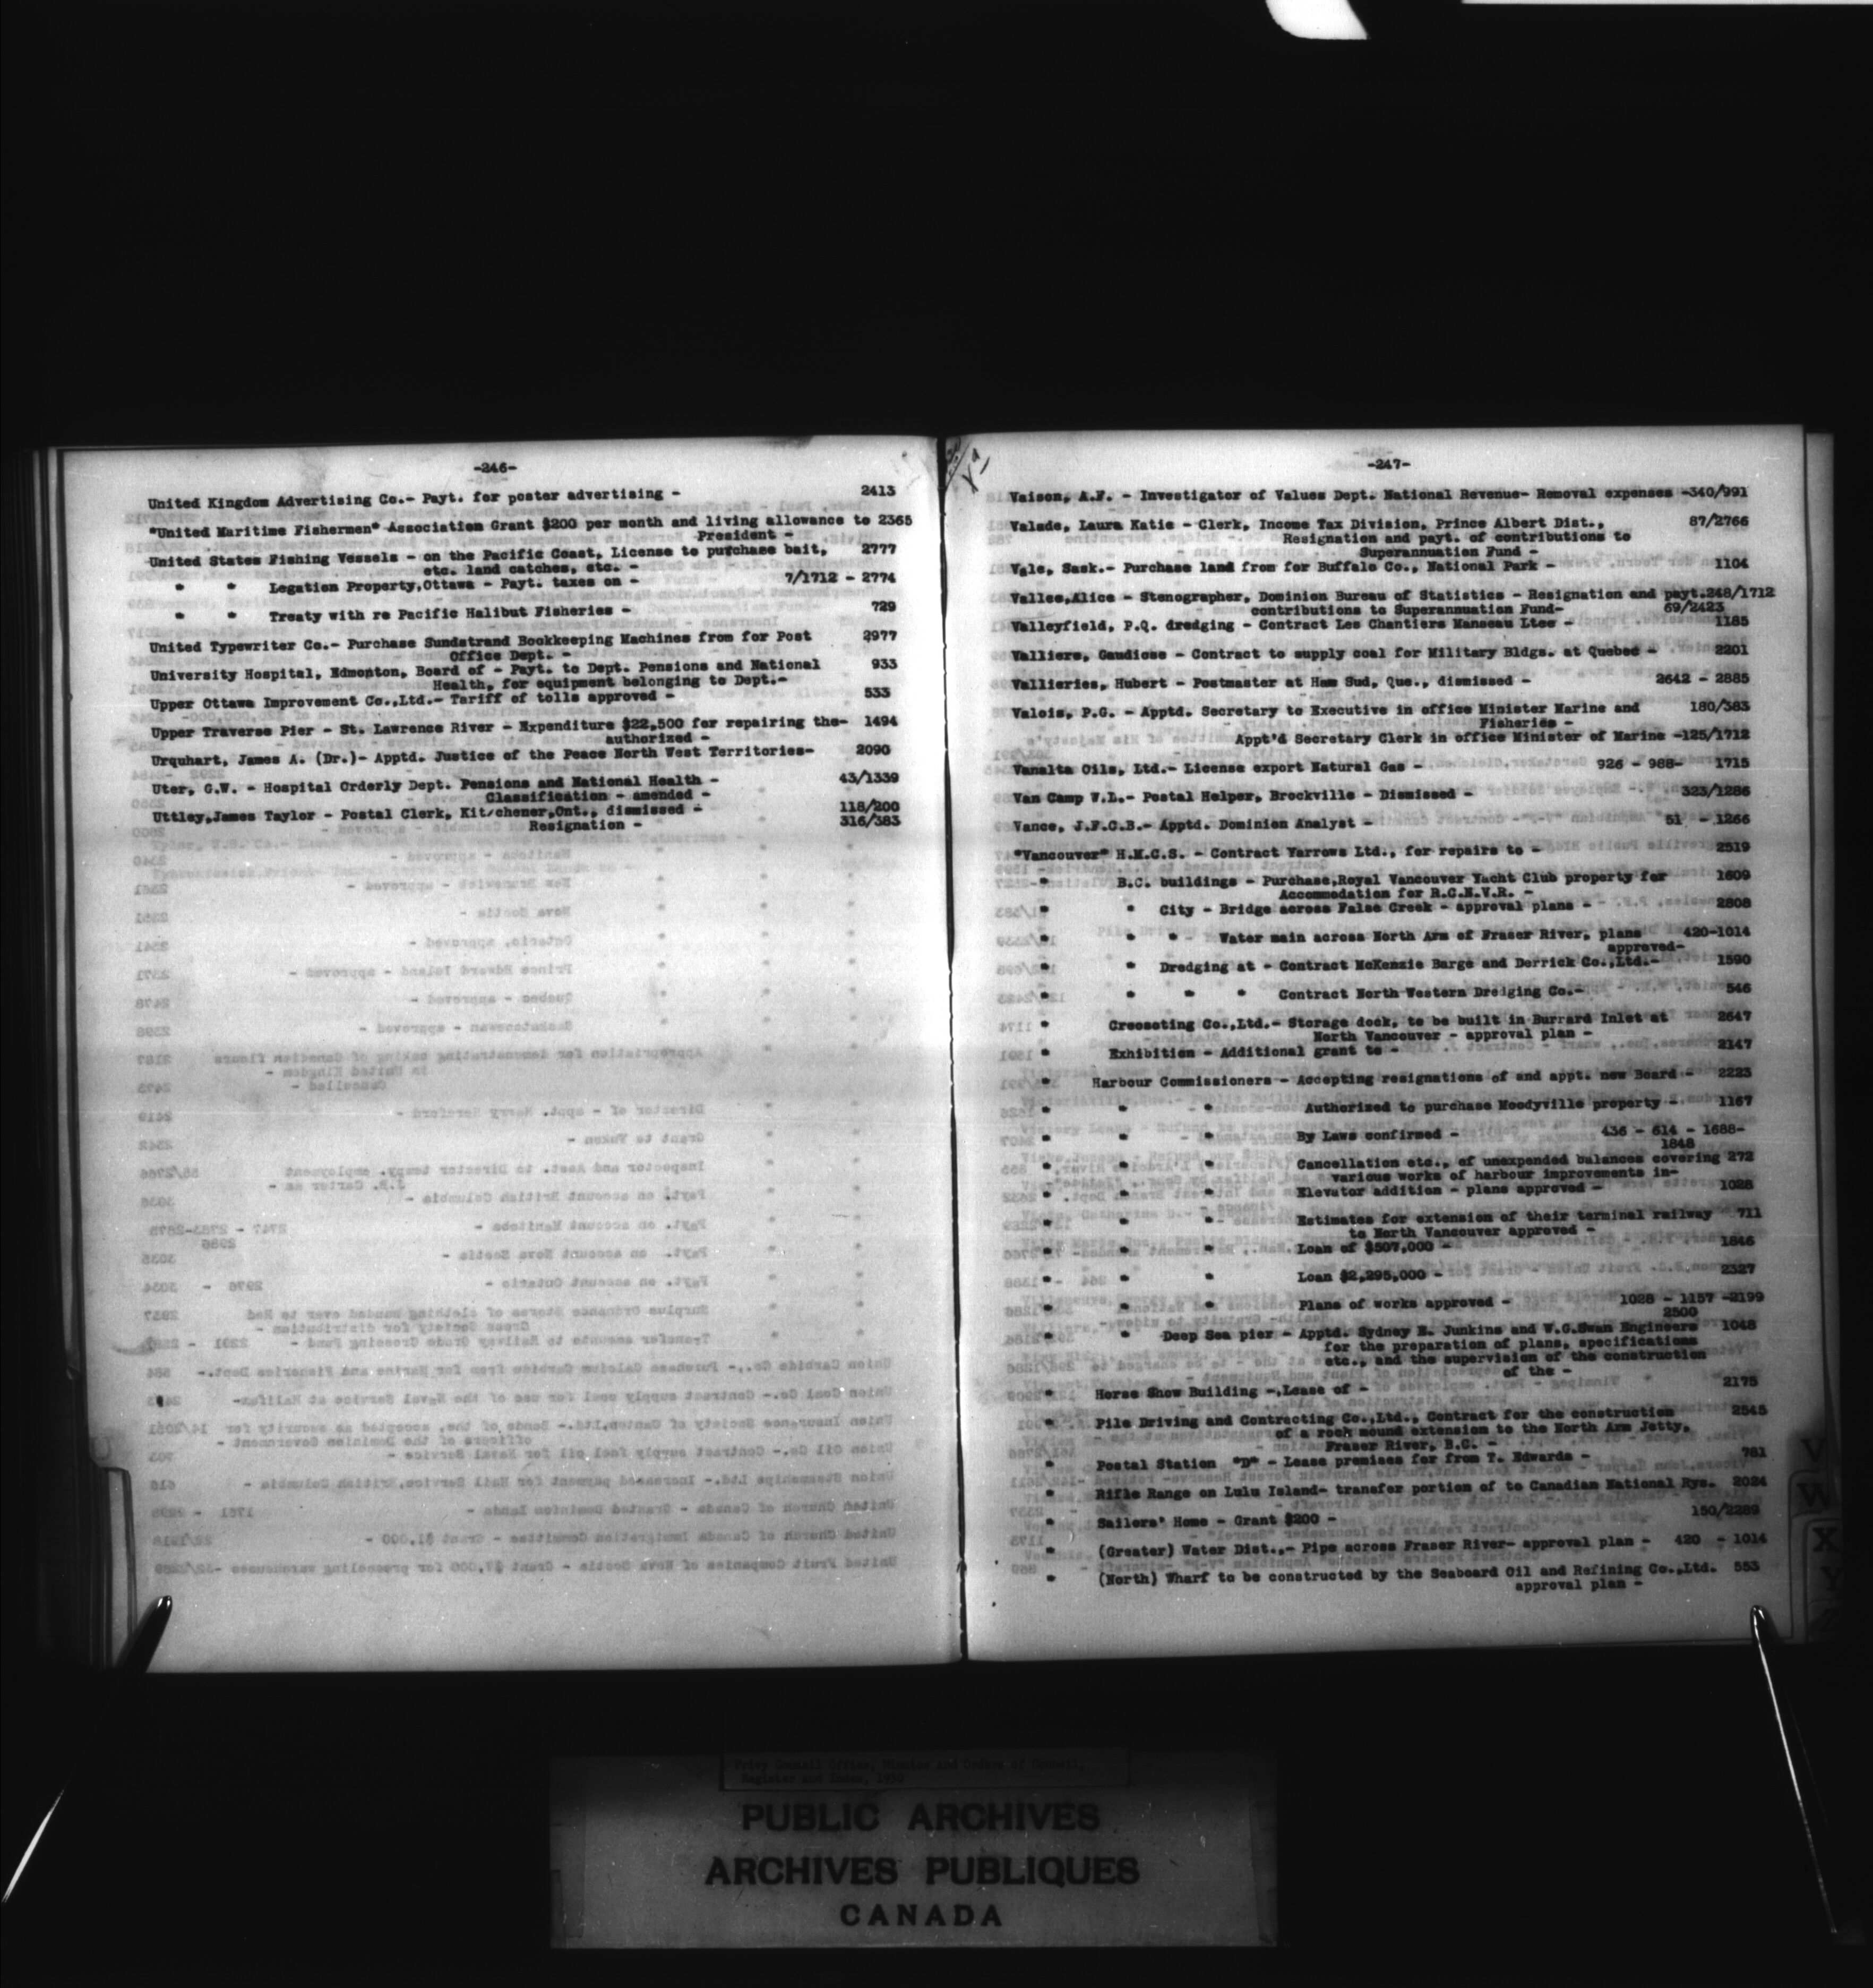 -246-
United Kingdom Advertising Co.- Payt. for poster advertising - 2413
"United Maritime Fishermen" Association Grant $200 per month and living allowance to 2365
President -
United States Fishing Vessels - on the Pacific Coast, License to purchase bait, 2777
etc. land catches, etc. -
" " Legation Property,Ottawa - Payt. taxes on - 7/1712 - 2774
" " Treaty with re Pacific Halibut Fisheries - 729
United Typewriter Co.- Purchase Sundstrand Bookkeeping Machines from for Post 2977
Office Dept. -
University Hospital, Edmonton, Board of - Payt. to Dept. Pensions and National 933
Health, for equipment belonging to Dept.-
Upper Ottawa Improvement Co.,Ltd.- Tariff of tolls approved - 533
Upper Traverse Pier - St. Lawrence River - Expenditure $22,500 for repairing the- 1494
authorized -
Urquhart, James A. (Dr.)- Apptd. Justice of the Peace North West Territories- 2090
Uter, G.W. - Hospital Orderly Dept. Pensions and National Health - 43/1339
Classification - amended -
Uttley,James Taylor - Postal Clerk, Kitchener,Ont., dismissed - 118/200
Resignation - 316/383
-247-
Vaison, A.F. - Investigator of Values Dept. National Revenue- Removal expenses -340/991
Valade, Laura Katie - Clerk, Income Tax Division, Prince Albert Dist., 87/2766
Resignation and payt. of contributions to
Superannuation Fund -
Vale, Sask.- Purchase land from for Buffalo Co., National Park - 1104
Vallee,Alice - Stenographer, Dominion Bureau of Statistics - Resignation and payt.248/1712
contributions to Superannuation Fund- 69/2423
Valleyfield, P.Q. dredging - Contract Les Chantiers Manseau Ltee - 1185
Valliere, Gaudiose - Contract to supply coal for Military Bldgs. at Quebec - 2201
Vallieries, Hubert - Postmaster at Ham Sud, Que., dismissed - 2642 - 2885
Valois, P.G. - Apptd. Secretary to Executive in office Minister Marine and 180/383
Fisheries -
Appt'd Secretary Clerk in office Minister of Marine -125/1712
Vanalta Oils, Ltd.- License export Natural Gas - 926 - 988- 1715
Van Camp W.L.- Postal Helper, Brockville - Dismissed - 323/1286
Vance, J.F.C.B.- Apptd. Dominion Analyst - 51 - 1266
"Vancouver" H.M.C.S. - Contract Yarrows Ltd., for repairs to - 2519
" B.C. buildings - Purchase,Royal Vancouver Yacht Club property for 1609
Accommodation for R.C.N.V.R. -
" " City - Bridge across False Creek - approval plans - 2808
" " " - Water main across North Arm of Fraser River, plans 420-1014
approved-
" " Dredging at - Contract McKenzie Barge and Derrick Co.,Ltd.- 1590
" " " " Contract North Western Dredging Co.- 546
" Creosoting Co.,Ltd.- Storage dock, to be built in Burrard Inlet at 2647
North Vancouver - approval plan -
" Exhibition - Additional grant to - 2147
" Harbour Commissioners - Accepting resignations of and appt. new Board - 2223
" " " Authorized to purchase Moodyville property - 1167
" " " By Laws confirmed - 436 - 614 - 1688-
1848
" " " Cancellation etc., of unexpended balances covering 272
various works of harbour improvements in-
" " " Elevator addition - plans approved - 1028
" " " Estimates for extension of their terminal railway 711
to North Vancouver approved -
" " " Loan of $507,000 - 1846
" " " Loan $2,295,000 - 2327
" " " Plans of works approved - 1028 - 1157 -2199
2500
" " Deep Sea pier - Apptd. Sydney E. Junkins and W.G.Swan Engineers 1048
for the preparation of plans, specifications
etc., and the supervision of the construction
of the -
" Horse Show Building -,Lease of - 2175
" Pile Driving and Contracting Co.,Ltd., Contract for the construction 2545
of a rock mound extension to the North Arm Jetty,
Fraser River, B.C. -
" Postal Station "D" - Lease premises for from T. Edwards - 781
" Rifle Range on Lulu Island- transfer portion of to Canadian National Rys. 2024
" Sailers' Home - Grant $200 - 150/2289
" (Greater) Water Dist.,- Pipe across Fraser River- approval plan - 420 - 1014
" (North) Wharf to be constructed by the Seaboard Oil and Refining Co.,Ltd. 553
approval plan -
V
W
X
Y
Z
Privy Council Office, Minutes and Orders of Council,
Register and Index, 1930
PUBLIC ARCHIVES
ARCHIVES PUBLIQUES
CANADA